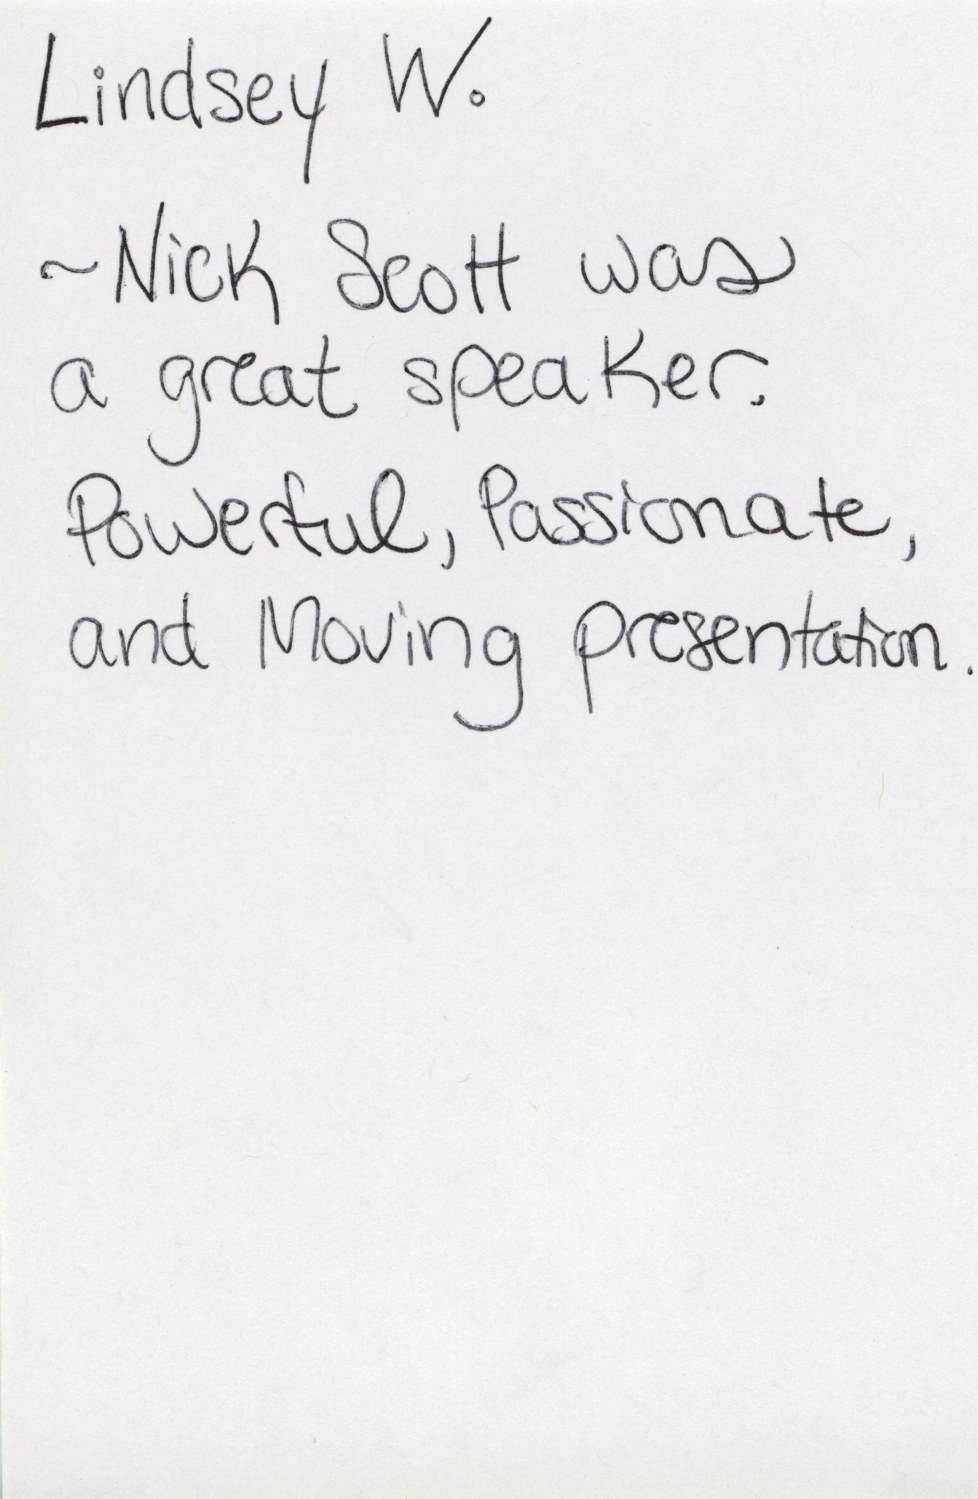 Lindsey W.
~Nick Scott was
a great speaker.
Powerful, Passionate,
and Moving presentation.